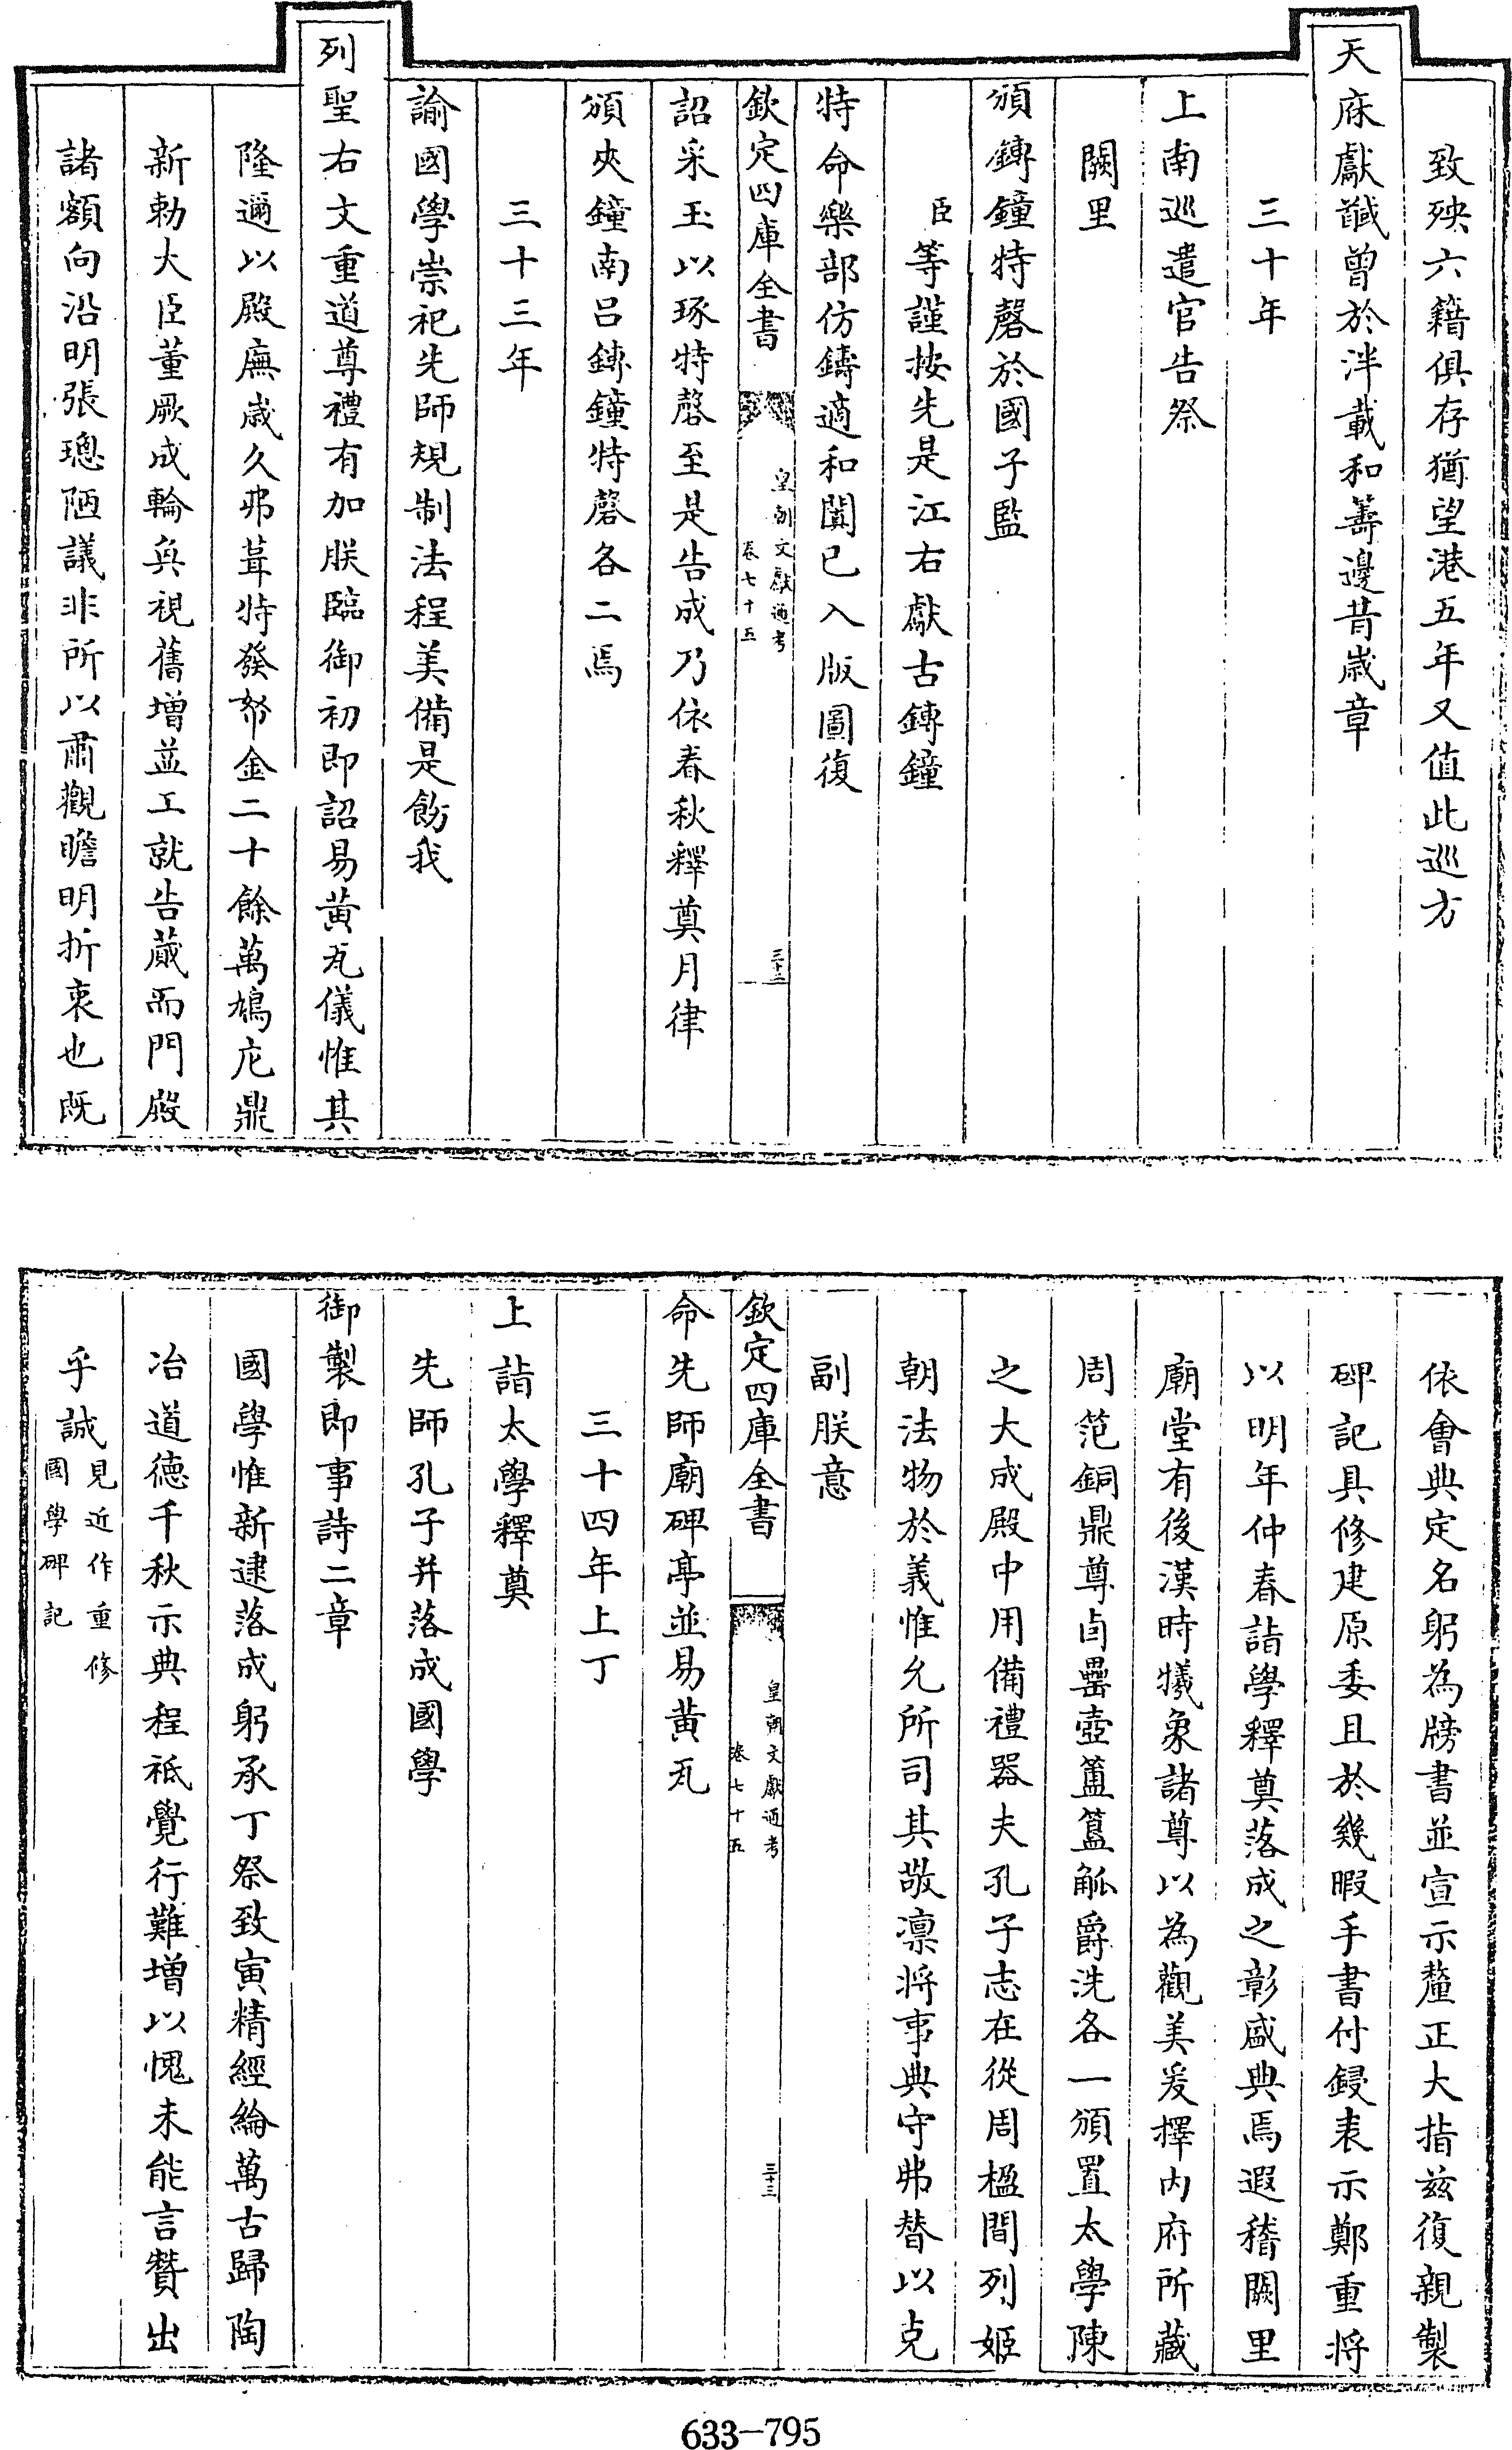 致殃六籍俱存猶望港五年又值此巡方
天庥獻馘曾於泮載和籌邊昔歳章
三十年
上南巡遣官告祭
闕里
頒鎛鐘特磬於國子監
臣等謹按先是江右獻古鎛鐘
特命樂部仿鑄適和闐已入版圖復
欽定四庫全書
皇朝文獻通考
卷七十五
三十二
詔采玉以琢特磬至是告成乃依春秋釋奠月律
頒夾鐘南呂鎛鐘特磬各二焉
三十三年
諭國學崇祀先師規制法程美備是飭我
列聖右文重道尊禮有加朕臨御初即詔易黃瓦儀惟其
隆邇以殿廡歳久弗葺特發帑金二十餘萬鳩庀鼎
新勅大臣董厥成輪奐視舊增並工就告蕆而門殿
諸額向沿明張璁陋議非所以肅觀瞻明折衷也既
依會典定名躬為牓書並宣示釐正大指茲復親製
碑記具修建原委且於幾暇手書付鋟表示鄭重將
以明年仲春詣學釋奠落成之彰盛典焉遐稽闕里
廟堂有後漢時犧象諸尊以為觀美爰擇內府所藏
周笵銅鼎尊卣罍壺簠簋觚爵洗各一頒置太學陳
之大成殿中用備禮器夫孔子志在從周楹間列姬
朝法物於義惟允所司其敬凛將事典守弗替以克
副朕意
欽定四庫全書
皇朝文獻通考
卷七十五
三十三
命先師廟碑亭並易黃瓦
三十四年上丁
上詣太學釋奠
先師孔子并落成國學
御製即事詩二章
國學惟新逮落成躬承丁祭致寅精經綸萬古歸陶
冶道德千秋示典程祗覺行難增以愧未能言贊出
乎誠見近作重修
國學碑記
633-795